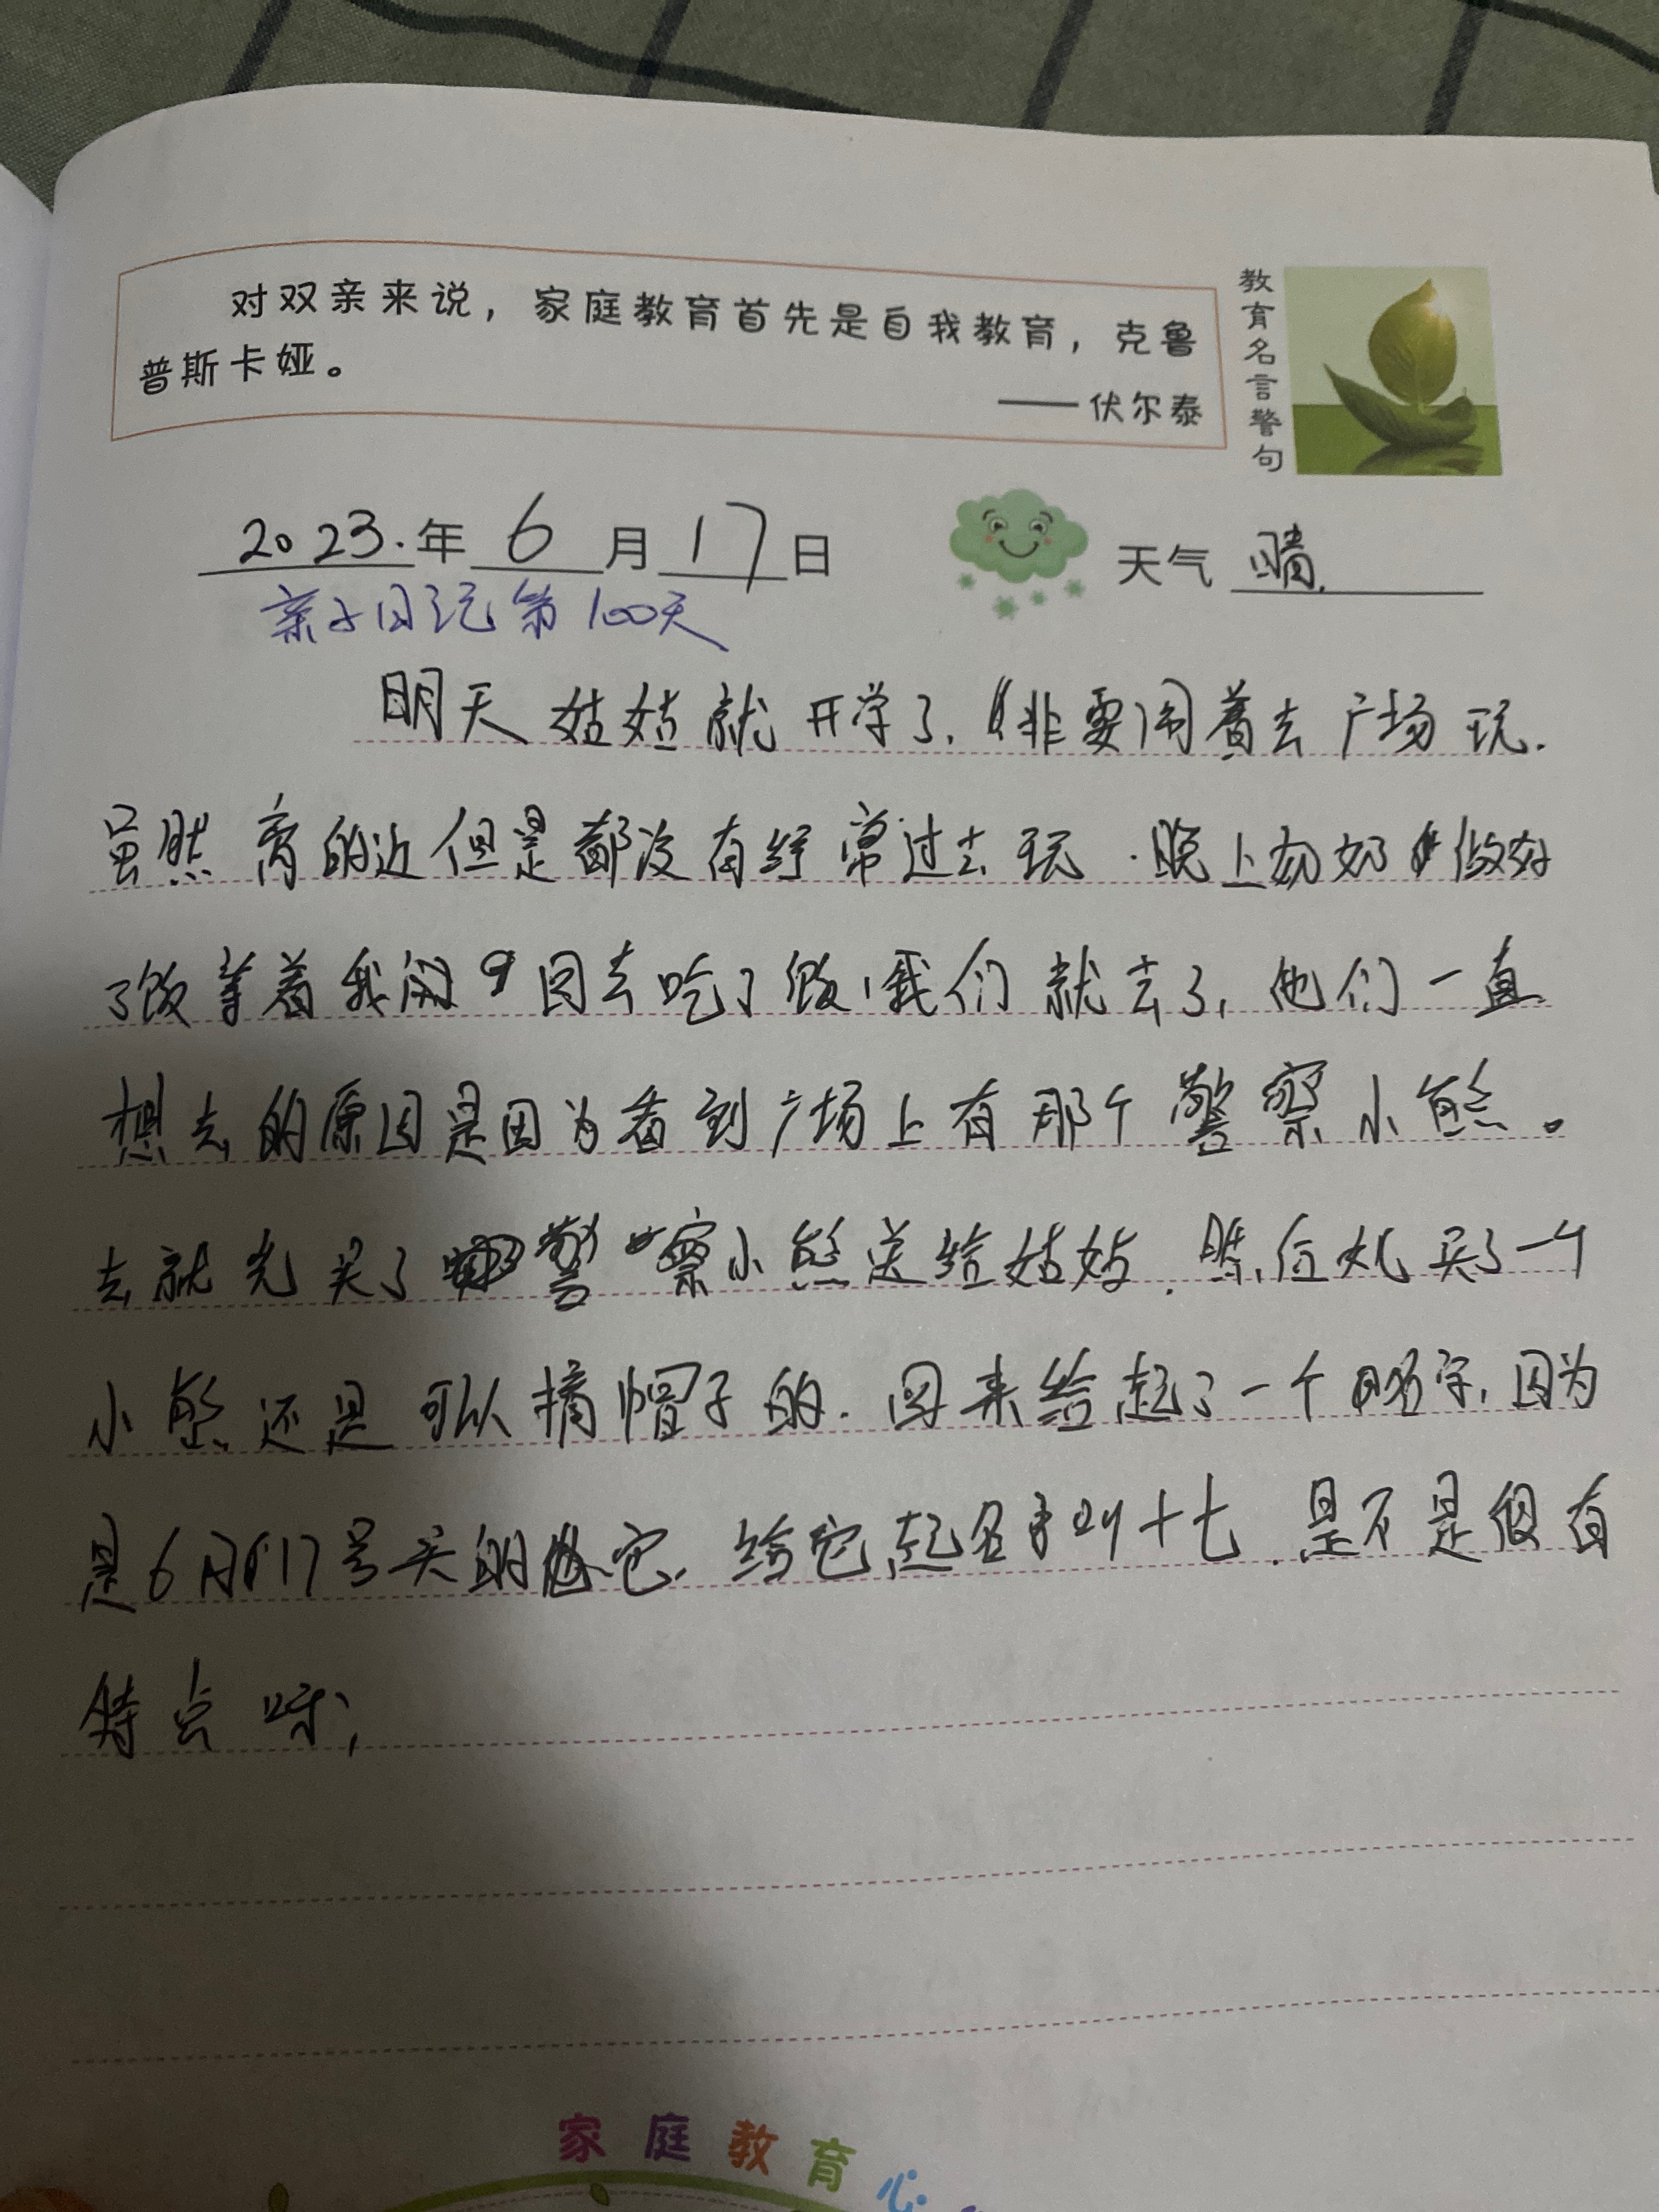 对双亲来说，家庭教育首先是自我教育，克鲁
普斯卡娅。
——伏尔泰
教育名言警句
2023.年 6 月 17 日
天气 晴.
亲子日记第100天
明天姑姑就开学了，非要闹着去广场玩.
虽然离的近但是都没有经常过去玩.晚上奶奶做好
了饭等着我们回去吃了饭,我们就去了,他们一直
想去的原因是因为看到广场上有那个警察小熊。
去就先买了警察小熊送给姑姑.买了一个
小熊还是可以摘帽子的.回来给起了一个名字,因为
是6月17号买的它,给它起名字叫十七.是不是很有
特点呀,
家庭教育心